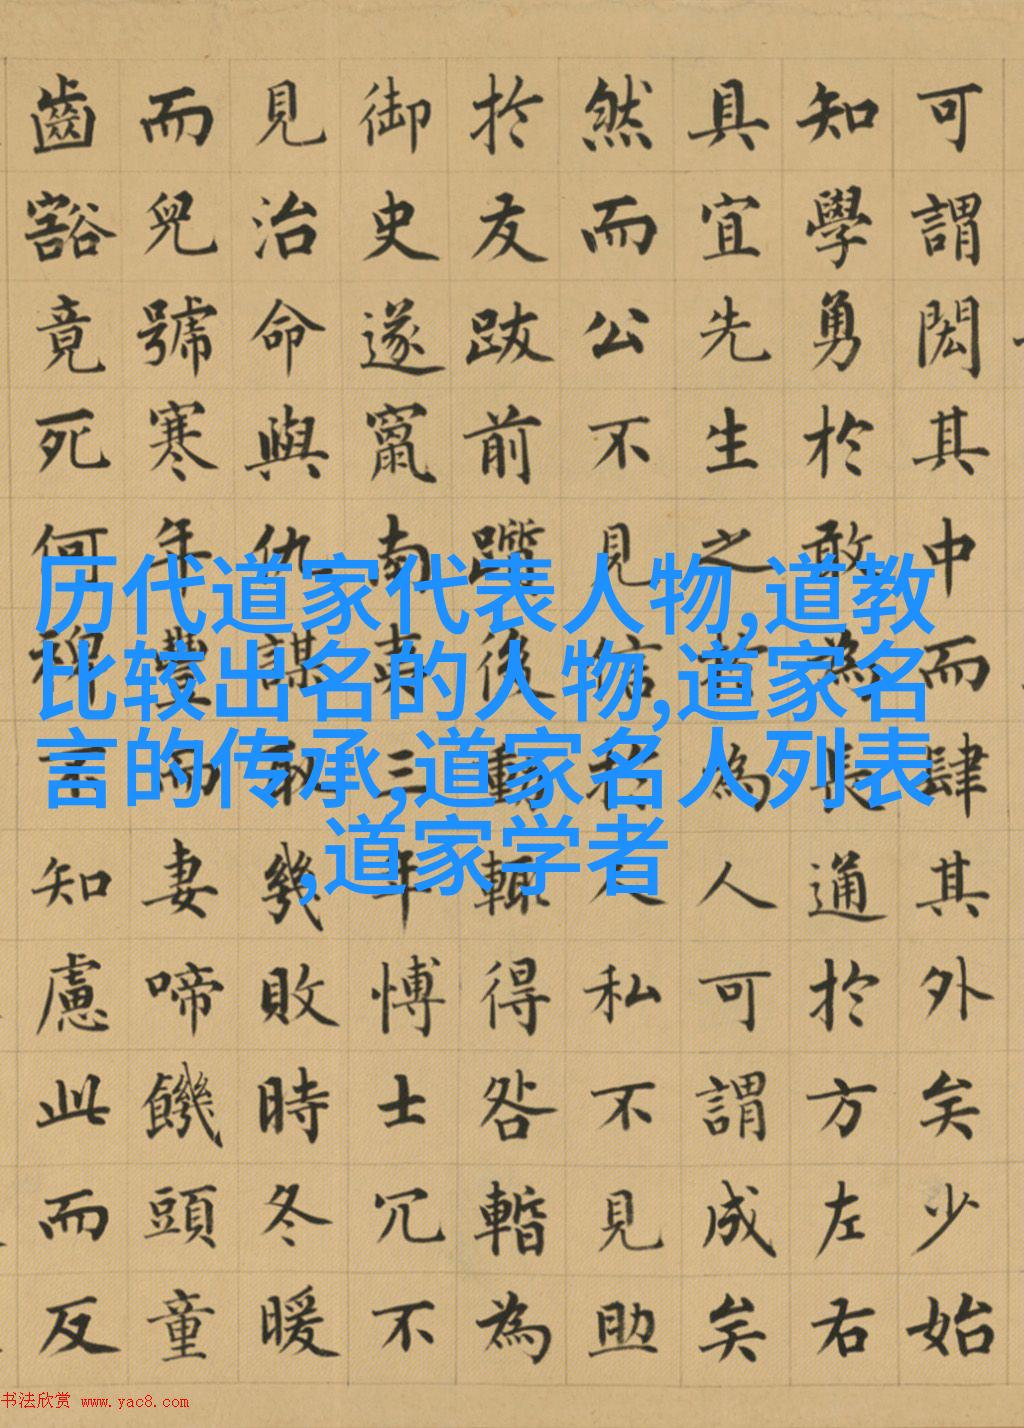 可謂閎其中而肆其外矣少始
知學勇於敢為長通於方左右
具宜先生之為人可謂成矣
然而公不見信於人私不見助
於友跋前躓後動輒得咎暫為
御史遂竄南夷三年博士冗不
見治命與仇謀取幾敗時冬暖
而兒號寒年豐而妻啼饑頭童
齒豁竟死何裨不知慮此而反
历代道家代表人物,道教
比较出名的人物,道家名
言的传承,道家名人列表
,道家学者
书法欣赏 www.yac8.com